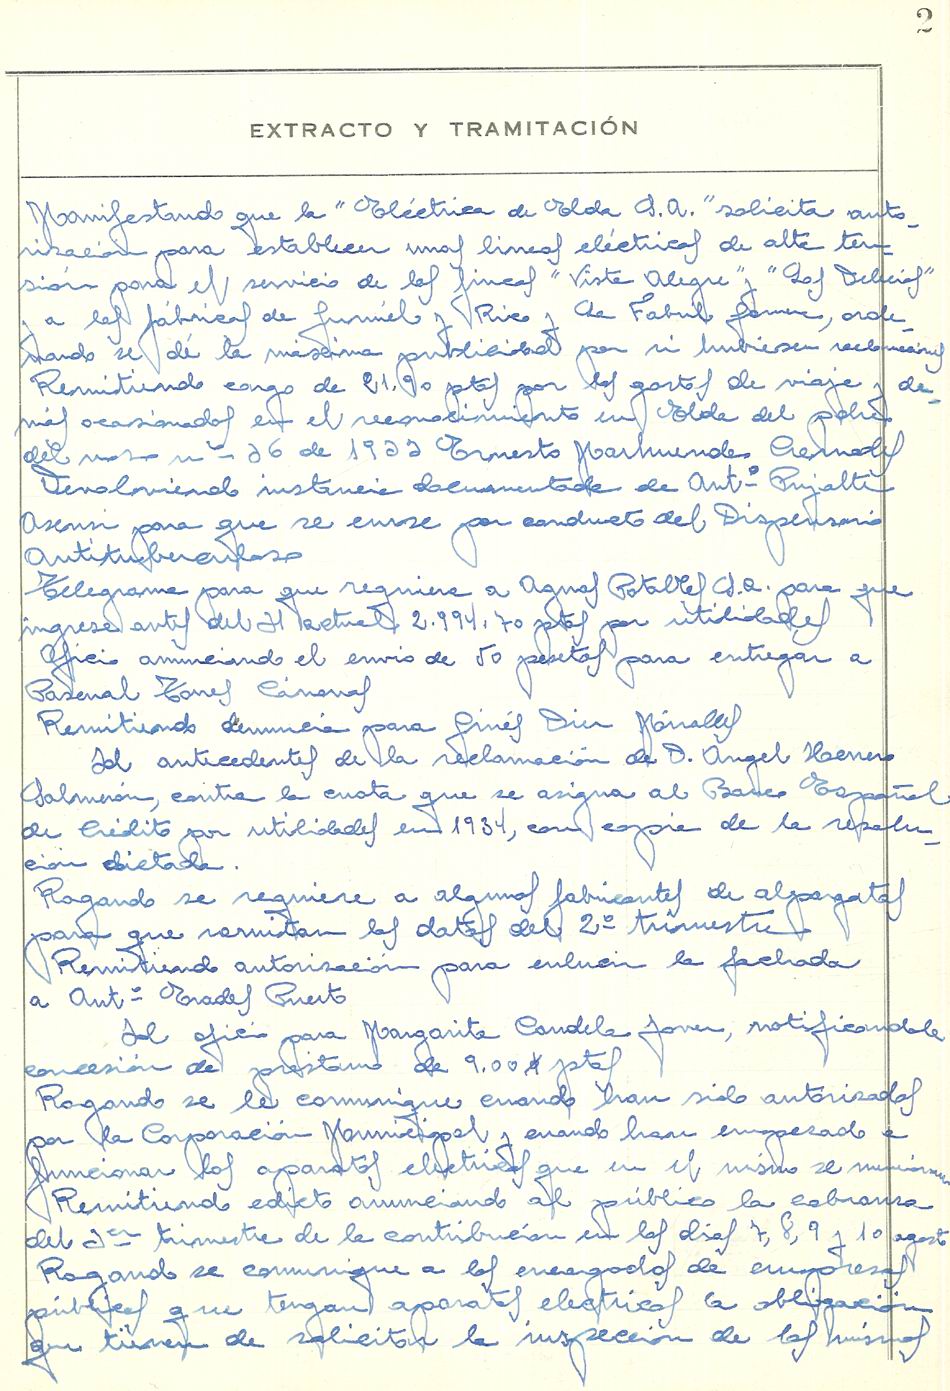 2
EXTRACTO Y TRAMITACIÓN
Manifestando que la "Eléctrica de Elda S.A." solicita auto-
rización para establecer unas lineas eléctricas de alta ten-
sión para el servicio de las fincas "Vista Alegre" y "Las Delicias"
y a las fábricas de Gurmel y Rico y La Fabril, orde-
nando se dé la máxima publicidad por si hubiesen reclamaciones
Remitiendo cargo de 21,90 ptas por los gastos de viaje y de-
más ocasionados en el reconocimiento en Elda del
del nº 26 de 1933 Ernesto
Devolviendo instancia documentada de Antº Pujalte
Asensi para que se curse por conducto del Dispensario
Antituberculoso
Telegrama para que requiera a Aguas Potables S.A. para que
ingrese antes del 31 actual 2.994,70 ptas por utilidades
Oficio anunciando el envio de 50 pesetas para entregar a
Pascual Tomas Cánovas
Remitiendo denuncia para Ginés Diu Miralles
Id antecedentes de la reclamación de D. Angel Herrero
Salmerón, contra la cuota que se asigna al Banco Español
de Crédito por utilidades en 1934, con copia de la resolu-
ción dictada.
Rogando se requiere a algunos fabricantes de alpargatas
para que remitan los datos del 2º trimestre
Remitiendo autorización para enlucir la fachada
a Antº Prades Puerto
Id oficio para Margarita Candela Jover, notificandole
concesión de prestamo de 9.00 ptas
Rogando se le comunique cuando han sido autorizados
por la Corporación Municipal y cuando han empezado a
funcionar los aparatos electricos que en el mismo se mencionan
Remitiendo edicto anunciando al público la cobranza
del 3er trimestre de la contribución en los dias 7, 8, 9 y 10 agosto
Rogando se comunique a los encargados de empresas
públicas que tengan aparatos electricos la obligación
que tienen de solicitar la inspección de los mismos